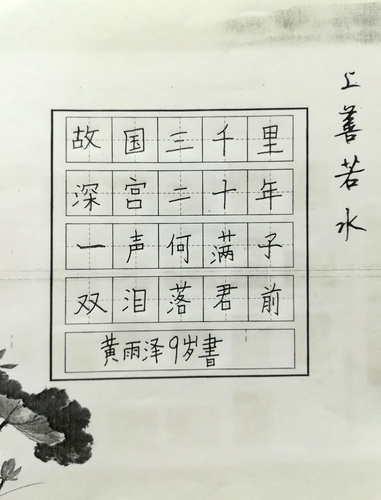 故国三千里
深宫二十年
一声何满子
双泪落君前
黄雨泽9岁書
上善若水